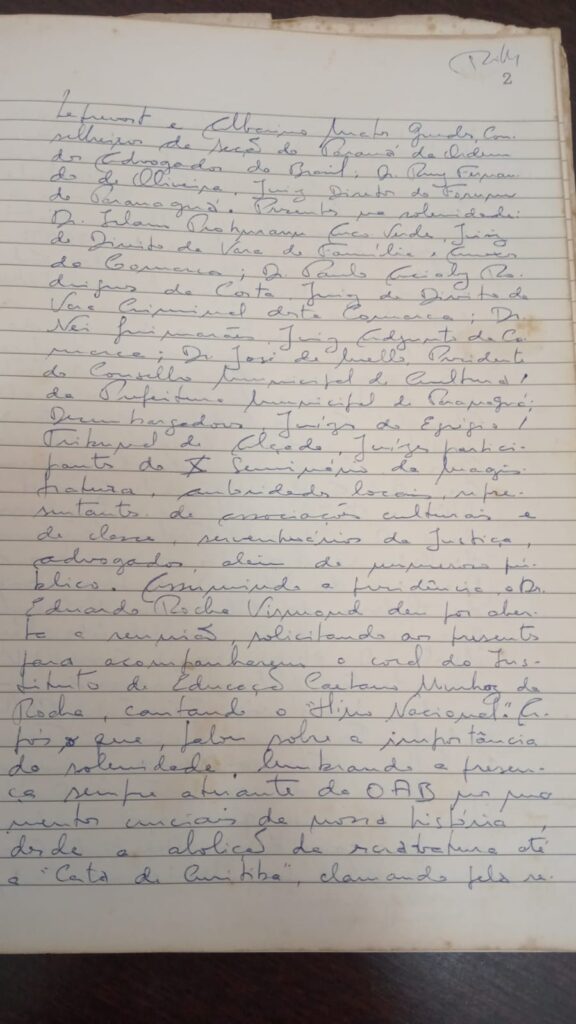 2
Lefrevost e Albanino Matos Guedes, Con
selheiros da Secção do Paraná da Ordem
dos Advogados do Brasil; Dr. Ruy Fernan
do de Oliveira, Juiz Diretor do Fórum
de Paranaguá. Presentes na solenidade:
Dr. Juiz
de Direito da Vara de Família e Anexos
da Comarca; Dr. Paulo Ro
drigues da Costa Juiz de Direito da
Vara Criminal desta Comarca; Dr.
Nei Guimarães, Juiz Adjunto da Co
marca; Dr. José de Mello, Presidente
do Conselho Municipal de Cultura
da Prefeitura Municipal de Paranaguá;
Desembargadores, Juízes do Egrégio
Tribunal de Alçada, Juízes partici
pantes do X Seminário da Magis
tratura, autoridades locais, repre
sentantes de associações culturais e
de classe, serventuários da Justiça,
advogados, além de numeroso pú
blico. Assumindo a presidência, o Dr.
Eduardo Rocha Virmond deu por aber
ta a reunião, solicitando aos presentes
para acompanharem o coral do Ins-
tituto de Educação Caetano Munhoz da
Rocha, cantando o "Hino Nacional". A-
pós o que, falou sobre a importância
da solenidade, lembrando a presen-
ça sempre atuante da OAB nos mo
mentos cruciais da nossa história,
desde a abolição da escravatura até
a "Carta de Curitiba", clamando pela re-